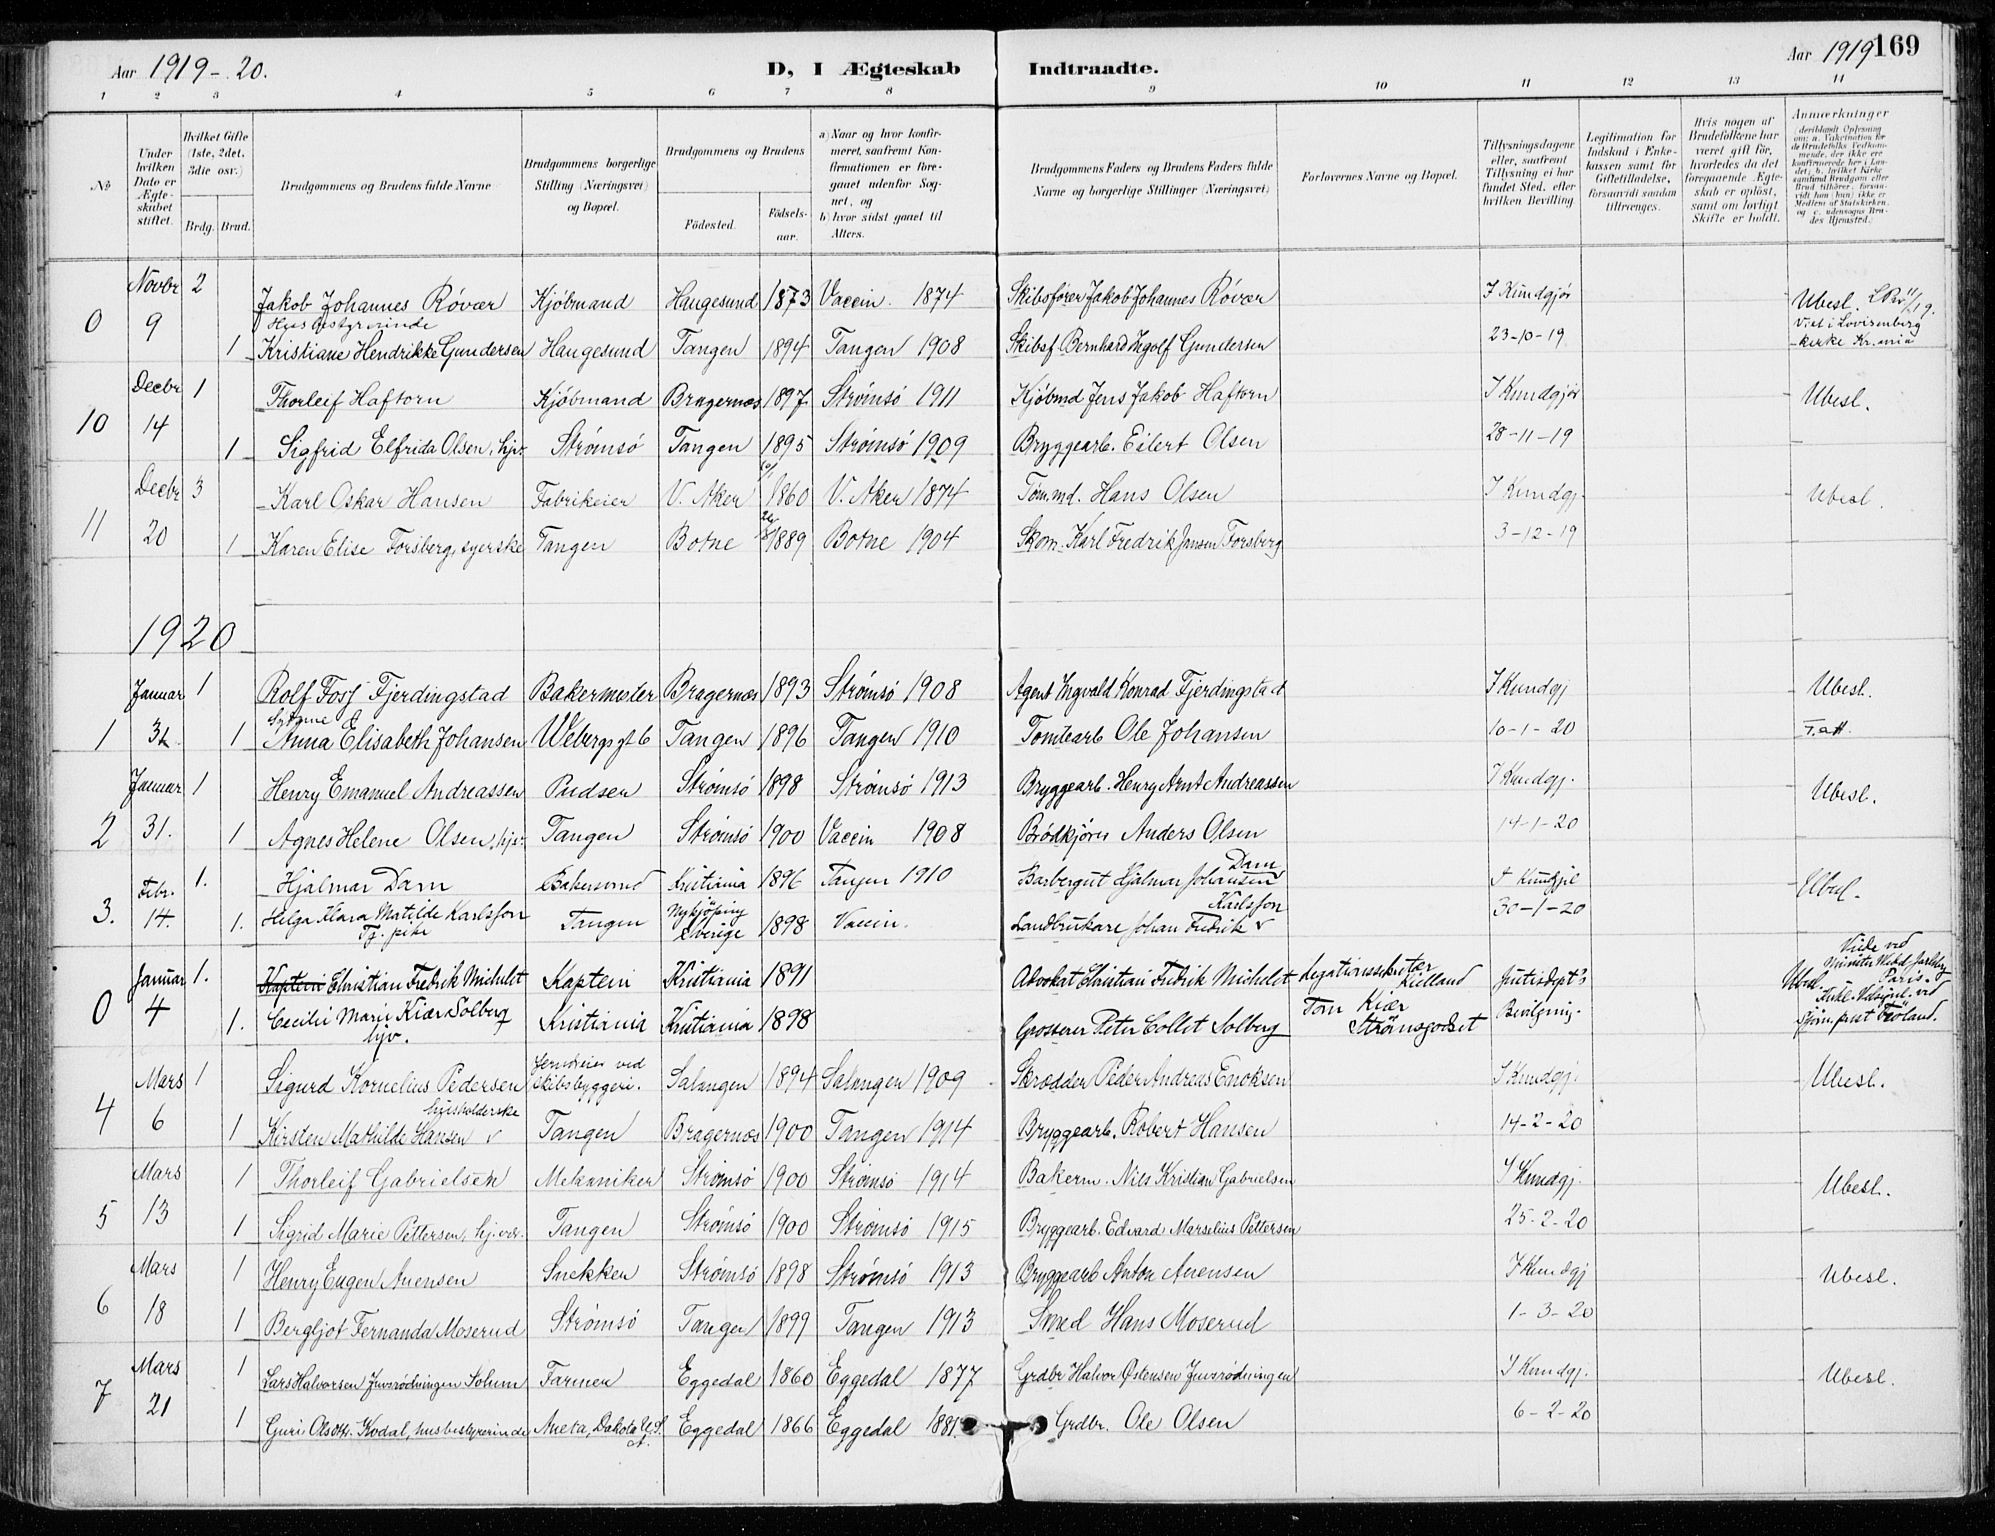 Aar 1919-20.
D, I Ægteskab Indtraadte.
Aar 1919 169
1 2 3 4 5 6 7 8 9 10 11 12 13 14
No
Under hvilken Dato er Ægteskabet stiftet.
Hvilket Gifte (1ste, 2det, 3die osv.)
Brdg. Brud.
Brudgommens og Brudens fulde Navne
Brudgommens borgerlige Stilling (Næringsvei) og Bopæl.
Brudgommens og Brudens
Fødested. Fødselsaar.
a) Naar og hvor konfirmeret, saafremt Konfirmationen er foregaaet udenfor Sognet, og
b) hvor sidst gaaet til Alters.
Brudgommens Faders og Brudens Faders fulde Navne og borgerlige Stillinger (Næringsvei)
Forlovernes Navne og Bopæl.
Tillysningsdagene eller, saafremt Tillysning ei har fundet Sted, efter hvilken Bevilling
Legitimation for Indskud i Enkekassen samt for Giftetilladelse, forsaavidt saadan tiltrænges.
Hvis nogen af Brudefolkene har været gift før, hvorledes da det foregaaende Ægteskab er opløst, samt om lovligt Skifte er holdt.
Anmærkninger
(deriblandt Oplysning om: a. Vakcination for de Brudefolks Vedkommende, der ikke ere konfirmerede her i Landet; b. hvilket Kirkesamfund Brudgom eller Brud tilhører, forsaavidt han (hun) ikke er Medlem af Statskirken, og c. udensogns Brudes Hjemsted.)
Novbr 2 Jakob Johannes Røvær Kjøbmand Haugesund 1873 Vaccin. 1874 Skibsfører Jakob Johannes Røvær I Kundgjør Ubesl.
0 9 Husbestyrerinde Viet i Lovisenberg
1 Kristiane Hendrikke Gundersen Haugesund Tangen 1894 Tangen 1908 Skibsf. Bernhard Ingolf Gundersen 23-10-19 kirke Kr.ania
Decbr 1 Thorleif Haftorn Kjøbmand Bragernæs 1897 Strømsø 1911 Kjøbmd Jens Jakob Haftorn I Kundgjør Ubesl.
10 14 1 Sigfrid Elfrida Olsen, hjv. Strømsø Tangen 1895 Strømsø 1909 Bryggearb. Eilert Olsen 28-11-19
Decbr 3 Karl Oskar Hansen Fabrikeier V. Aker 1860 V. Aker 1874 Tøm.md. Hans Olsen I Kundgj. Ubesl.
11 20 1 Karen Elise Forsberg, syerske Tangen Botne 1889 Botne 1904 Skom. Karl Fredrik Jansen Forsberg 3-12-19
1920
Januar 1 Rolf Foss Fjerdingstad Bakermester Bragernæs 1893 Strømsø 1908 Agent Ingvald Konrad Fjerdingstad I Kundgj Ubesl.
1 31. 1 Anna Elisabeth Johansen Webergsgt 6 Tangen 1896 Tangen 1910 Tomtearb Ole Johansen 10-1-20 T. att.
Januar 1 Henry Emanuel Andreassen Pudser Strømsø 1898 Strømsø 1913 Bryggearb. Henry Arnt Andreassen I Kundgj. Ubesl.
2 31. 1 Agnes Helene Olsen, hjv. Tangen Strømsø 1900 Vaccin 1908 Brødkjører Anders Olsen 14-1-20
Febr. 1. Hjalmar Dam Bakersvend Kristiania 1896 Tangen 1910 Barbergut Hjalmar Johansen Dam I Kundgj Ubesl.
3. 14. 1. Helga Klara Matilde Karlsson Tj. pike Tangen Nykjöping Sverige 1898 Vaccin. Landbrukare Johan Fredrik Karlsson 30-1-20
Januar 1. Kaptein Christian Fredrik Michelet Kaptein Kristiania 1891 Advokat Christian Fredrik Michelet Legationssekretær Kielland Justisdept's Ubesl. Viede ved Minister Wedel Jarlsberg Paris.
0 4 1. Cecilie Marie Kiær Solberg hjv. Kristiania Kristiania 1898 Grosserer Peter Collet Solberg Tom Kiær Strømsgodset Bevilgning. Kirkel. Velsignl. ved Sjöm.prest Fröland.
Mars 1 Sigurd Kornelius Pedersen skibsbyggeri. Salangen 1894 Salangen 1909 Skrædder Peder Andreas Enoksen I Kundgj. Ubesl.
4 6 1 Kirsten Mathilde Hansen husholderske Tangen Bragernæs 1900 Tangen 1914 Bryggearb. Robert Hansen 14-2-20
Mars 1 Thorleif Gabrielsen Mekaniker Strømsø 1900 Strømsø 1914 Bakerm. Nils Kristian Gabrielsen I Kundgj. Ubesl.
5 13 1 Sigrid Marie Pettersen, hj.vær. Tangen Strømsø 1900 Strømsø 1915 Bryggearb. Edvard Marselius Pettersen 25-2-20
Mars 1 Henry Eugen Arensen Snekker Strømsø 1898 Strømsø 1913 Bryggearb Anton Arensen I Kundgj Ubesl.
6 18 1 Bergljot Fernanda Moserud Strømsø Tangen 1899 Tangen 1913 Smed Hans Moserud 1-3-20
Mars 1 Lars Halvorsen Juvsrødningen Solum Farmer Eggedal 1860 Eggedal 1877 Grdbr Halvor Østensen Juvsrødningen I Kundgj. Ubesl.
7 21 1 Guri Olsdtr. Kodal, husbestyrerinde Aneta, Dakota U.S.A. Eggedal 1866 Eggedal 1881. Grdbr. Ole Olsen 6-2-20